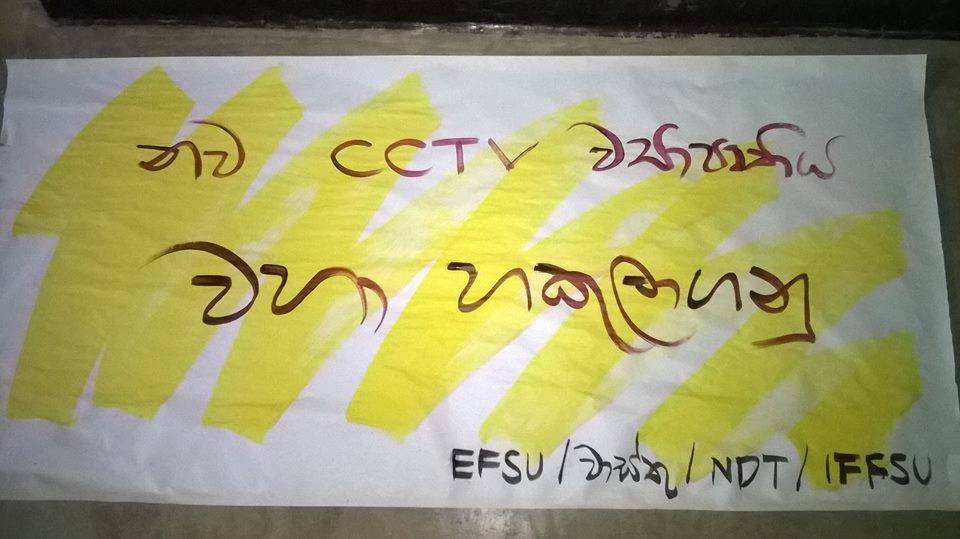 නව CCTV ව්‍යාපෘතිය
වහා හකුලාගනු
EFSU / වාස්තු / NDT / IFFSU